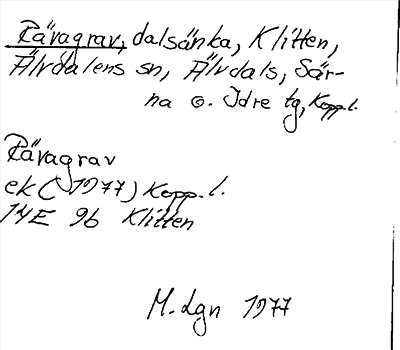 Rävagrav, dalsänka, Klitten,
Älvdalens sn, Älvdals, Sär-
na o. Idre tg, Kopp.l.
Rävagrav
ek (1977) Kopp. l.
14E 9b Klitten
M. Lgn 1977